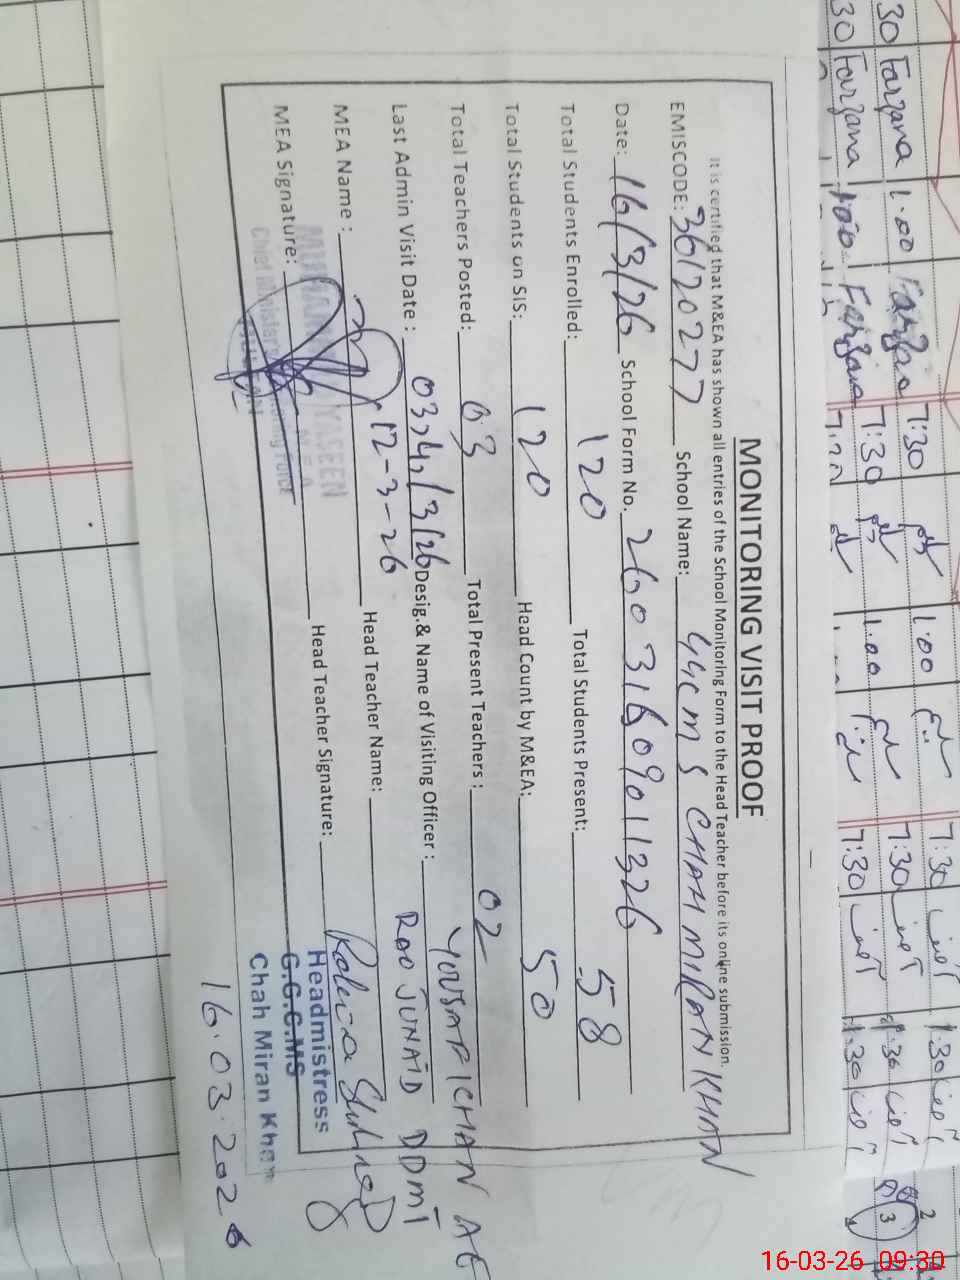 MONITORING VISIT PROOF
It is certified that M&EA has shown all entries of the School Monitoring Form to the Head Teacher before its online submission.
EMISCODE: 36120277 School Name: GGCMS CHAH MIRAN KHAN
Date: 16/3/26 School Form No. 260316090011326
Total Students Enrolled: 120 Total Students Present: 58
Total Students on SIS: 120 Head Count by M&EA: 50
Total Teachers Posted: 03 Total Present Teachers: 02
Last Admin Visit Date: 03,4,/3/26 Desig.& Name of Visiting Officer: YOUSAF KHAN AE
12-3-26 RAO JUNAID DDMI
MEA Name: Head Teacher Name:
MUHAMMAD YASEEN
MEA Signature: Head Teacher Signature:
Chief Minister Monitoring Force
Headmistress
G.G.C.MS
Chah Miran Khan
16.03.2026
30 Farzana 1.00 Farzana 7:30 1.00 7:30 1:30
30 Farzana 1.00 Farzana 7:30 1.00 7:30 1:30
7:30 1:30
16-03-26 09:30